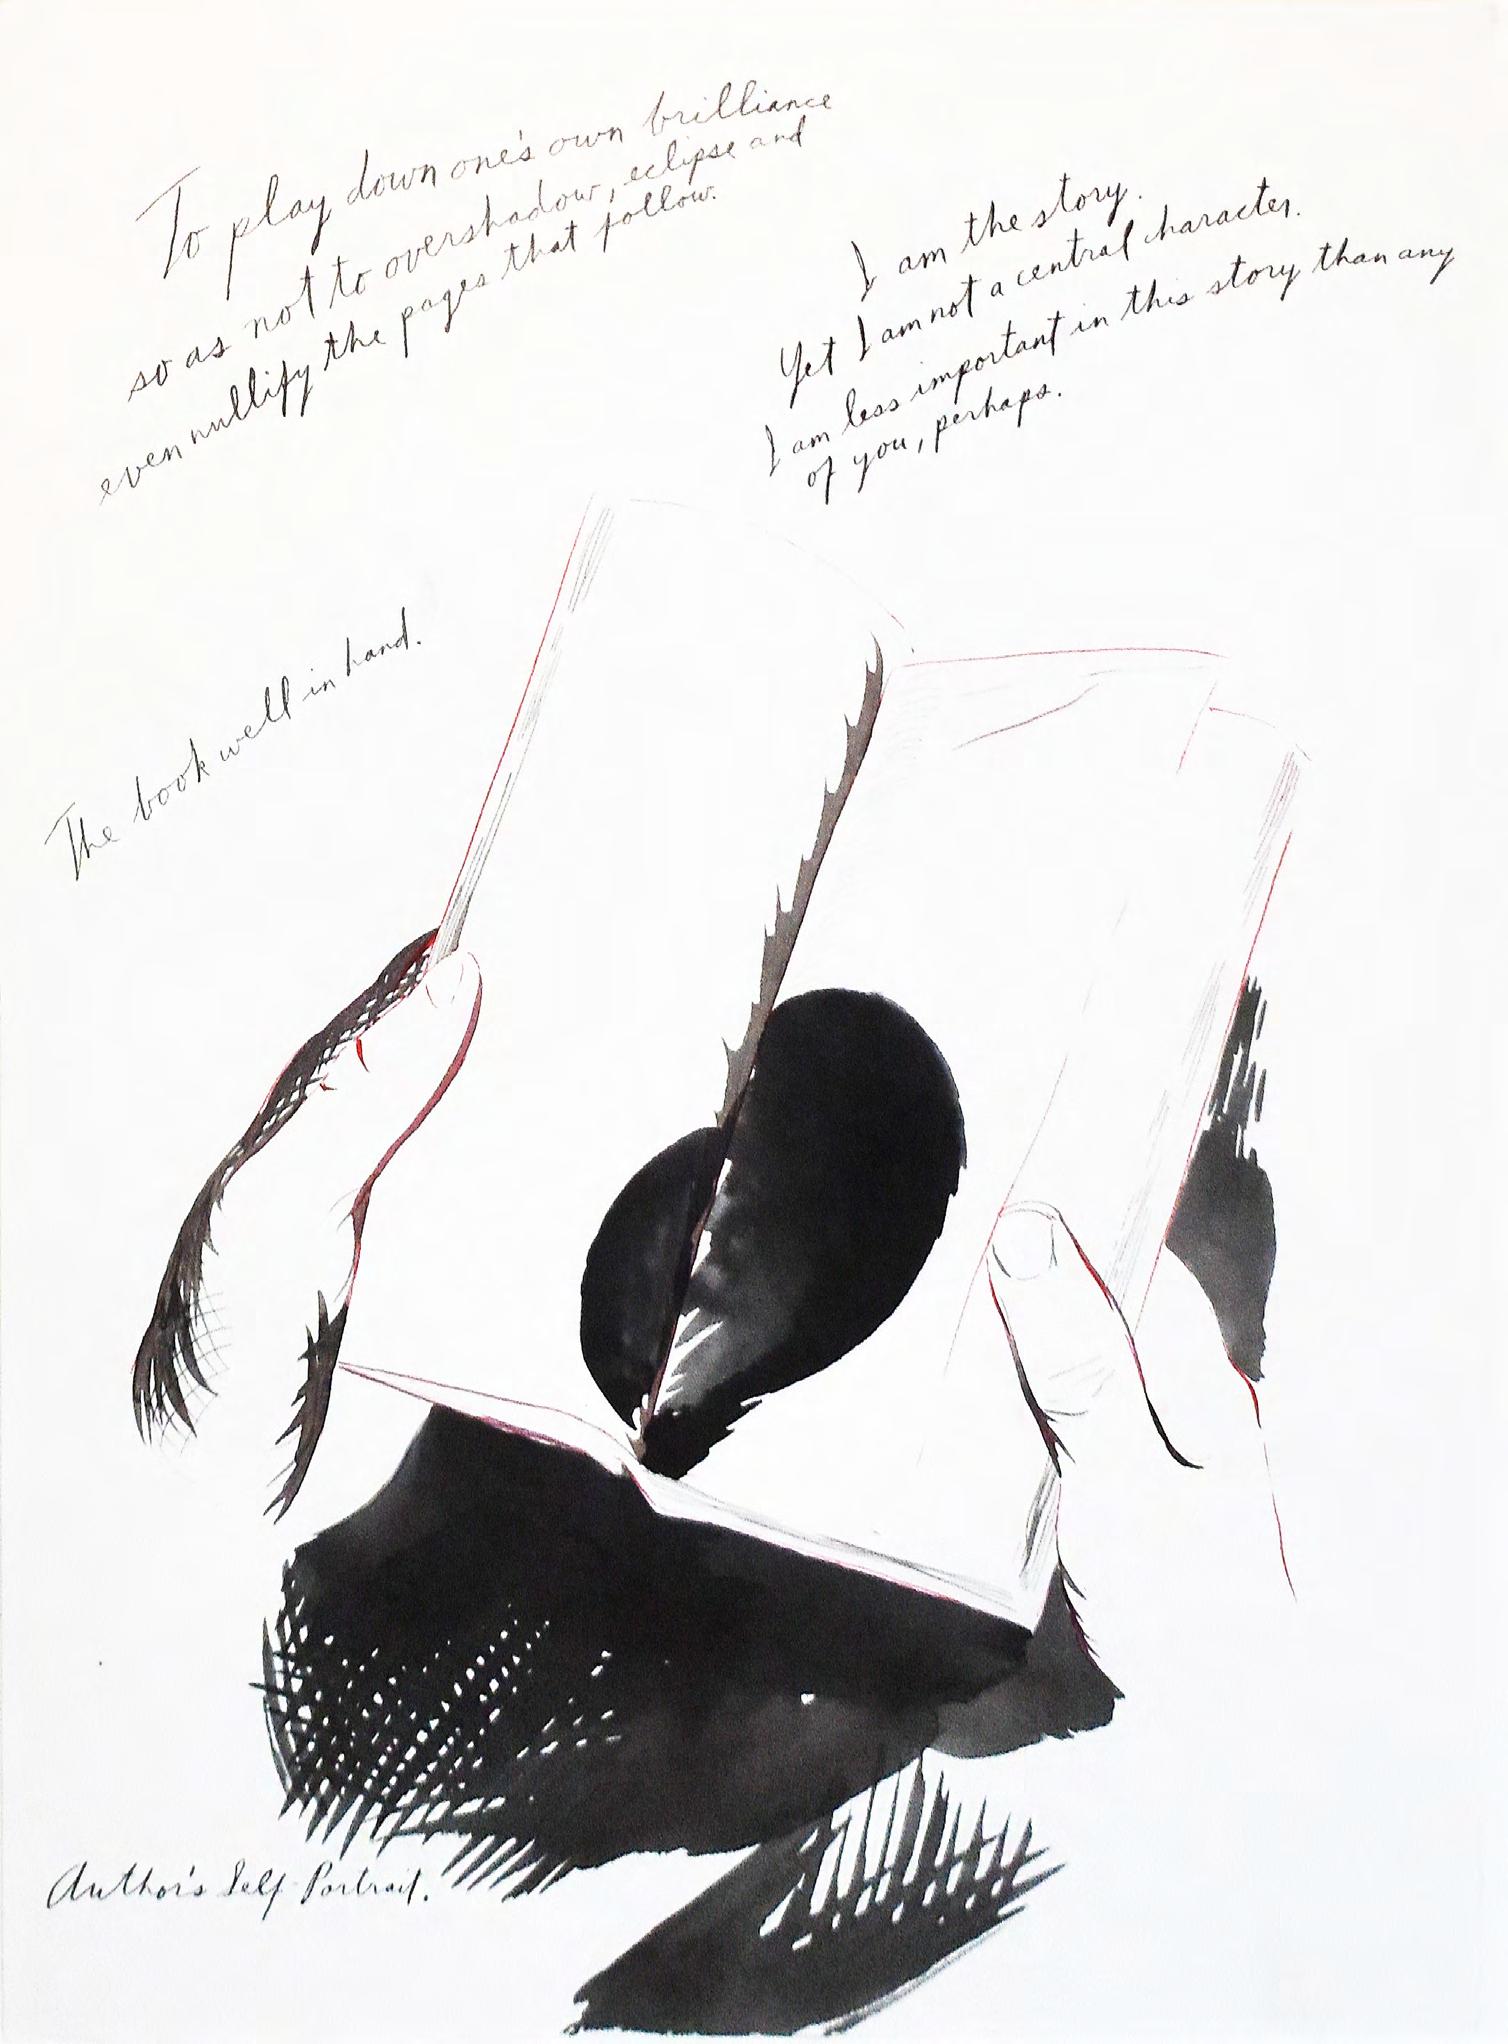 To play down one's own brilliance
so as not to overshadow, eclipse and
even nullify the pages that follow.
I am the story.
Yet I am not a central character.
I am less important in this story than any
of you, perhaps.
The book well in hand.
Author's Self-Portrait.